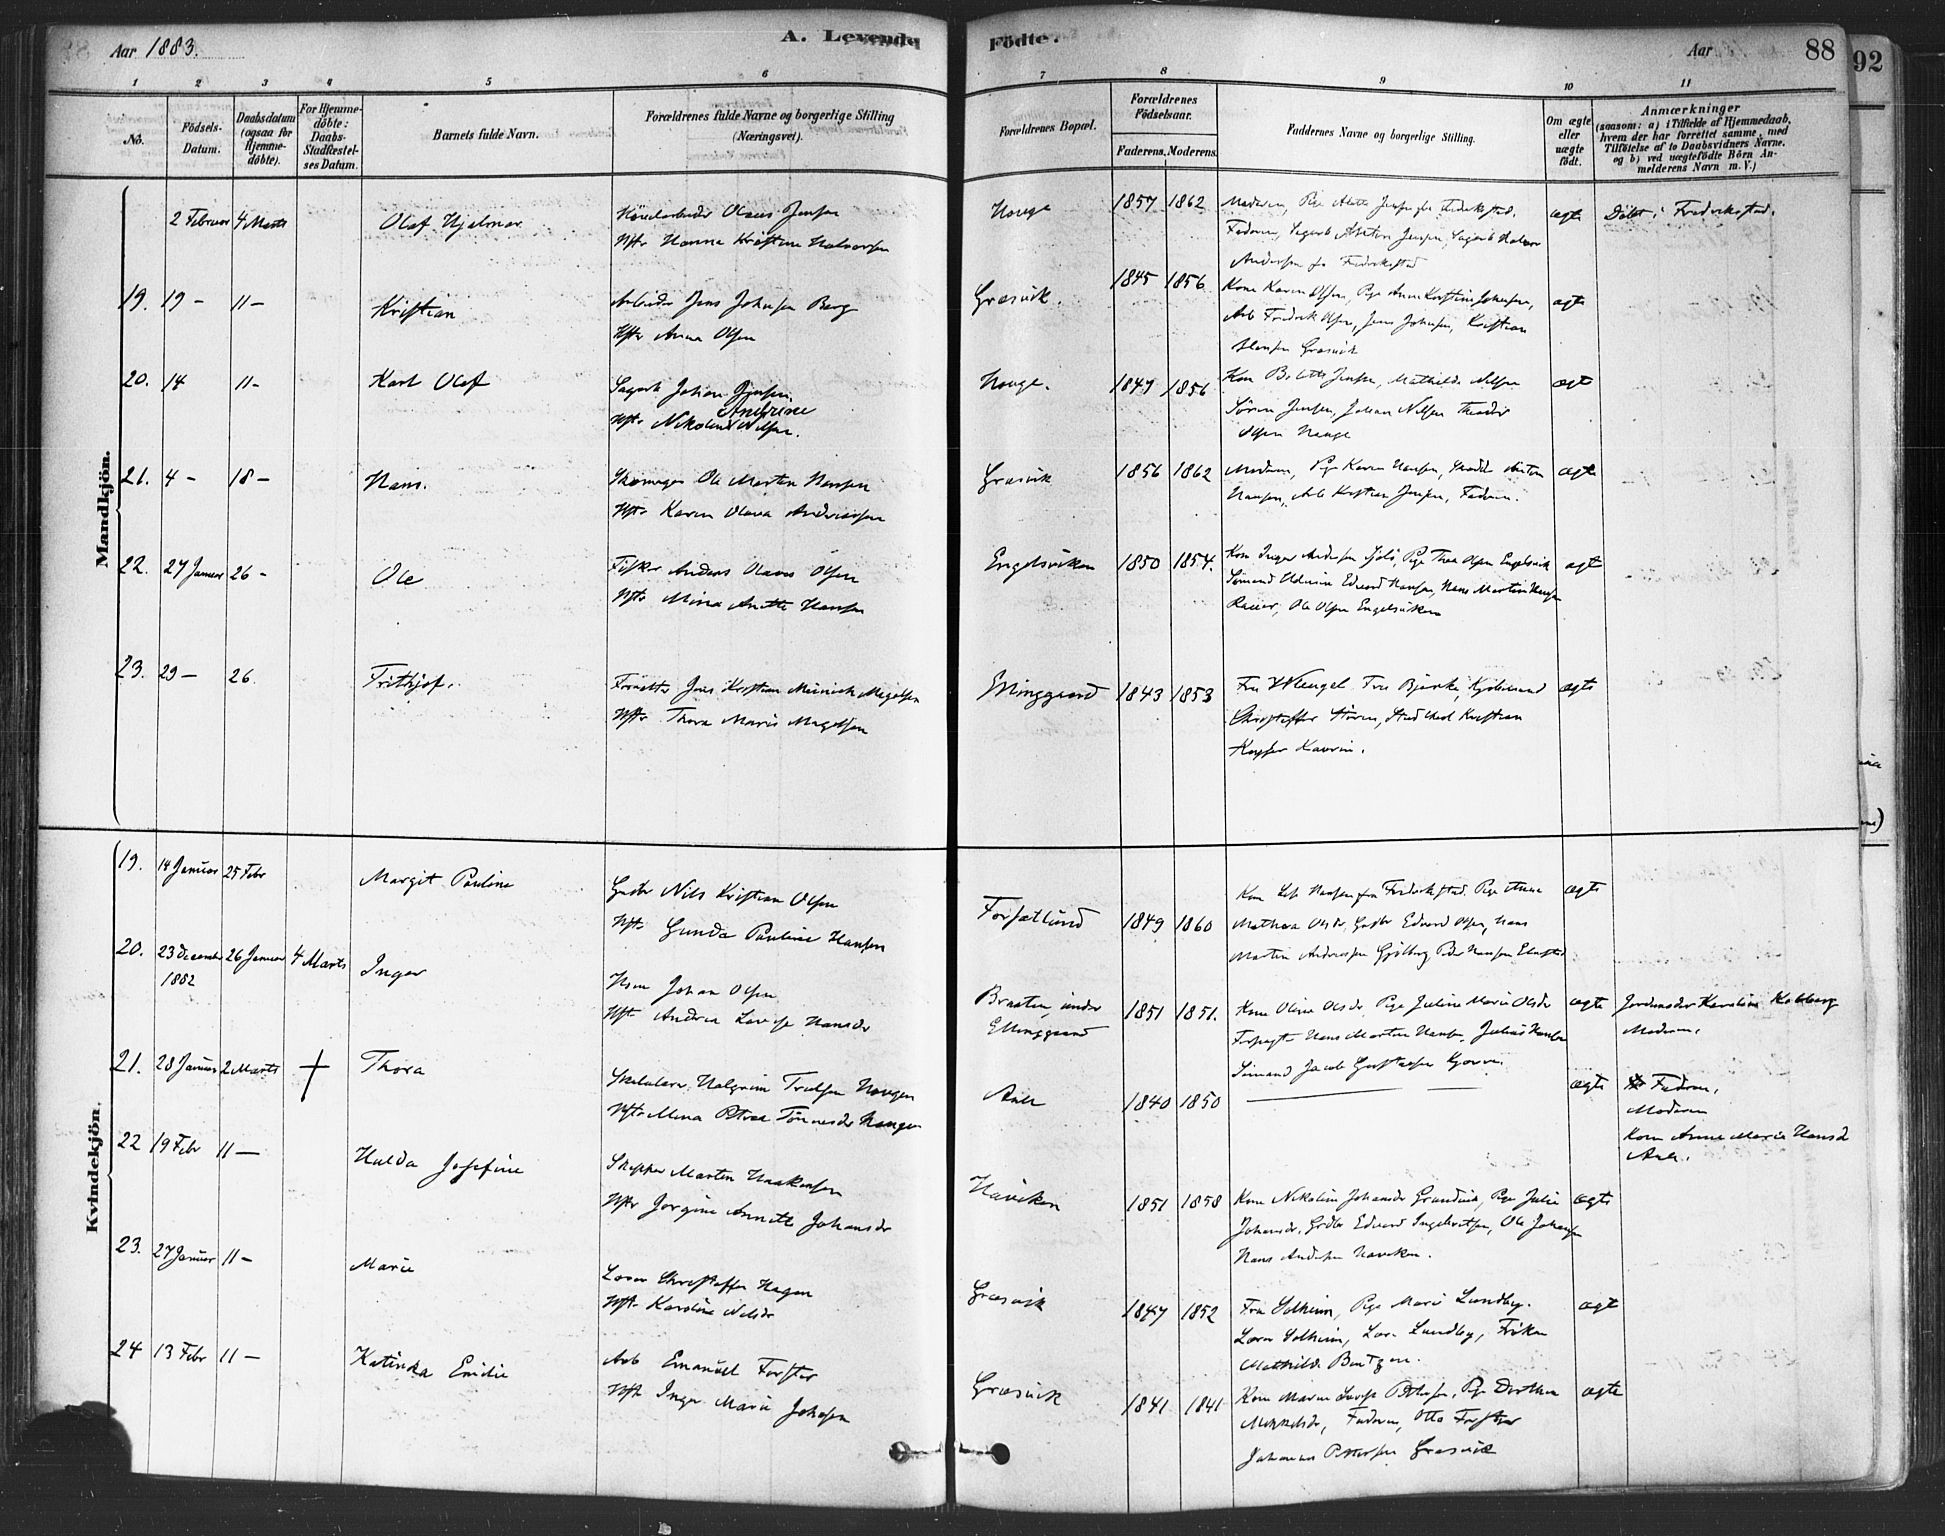 Aar 1883.
A. Levende Födte.
Aar
88
92
1 2 3 4 5 6 7 8 9 10 11
No.
Födsels-
Datum.
Daabsdatum
(ogsaa for
Hjemme-
döbte).
For Hjemme-
döbte:
Daabs-
Stadfæstel-
ses Datum.
Barnets fulde Navn.
Forældrenes fulde Navne og borgerlige Stilling
(Næringsvei).
Forældrenes Bopæl.
Forældrenes
Födselsaar.
Faderens. Moderens.
Faddernes Navne og borgerlige Stilling.
Om ægte
eller
uægte
födt.
Anmærkninger
(saasom: a) i Tilfælde af Hjemmedaab,
hvem der har forrettet samme, med
Tilföielse af to Daabsvidners Navne.
og b) ved uægtefödte Börn An-
melderens Navn m. V.)
Mandkjön.
2 Februar 4 Marts Olaf Hjalmar
Olaus Jensen
Hstr Hanna Kristine Halvorsen
Houge 1857 1862
Moderen, Pige Jensen fra Frederikstad.
Faderen, Sagarb Jensen, Sagarb Halvor
Andersen fra Frederikstad
ægte Döbt i Frederikstad.
19. 19 - 11 - Kristian
Arbeider Jens Johnsen Berg
Hstr Anna Olsen
Græsvik. 1845 1856
Kone Karen Olsen, Pige Anne Kristine Johnsen,
Arb Fredrik Olsen, Jens Johnsen, Kristian
Hansen Græsvik
ægte
20. 14 11 - Karl Olaf
Sagarb Johan Jensen.
Andrine
Hstr Nikoline Nilsen.
Houge. 1847 1856
Kone Jensen, Mathilde Nilsen
Sören Jensen, Johan Nilsen Theodor
Olsen Houge
ægt
21. 4 - 18 - Hans.
Ole Martin Hansen
Hstr Karen Olava Andreassen
Græsvik 1856 1862
Moderen, Pige Karen Hansen, Anton
Hansen, Arb Kristian Jensen, Faderen.
ægte
22. 27 Januar 26 - Ole
Fisker Anders Olaus Olsen
Hstr Mina Anette Hansen
Engelsviken 1850 1854.
Kone Inger Andersen, Pige Thea Olsen Engelsvik
Sömand Edvard Hansen, Hans Martin Hansen
Rauer, Ole Olsen Engelsviken
ægt
23. 29 - 26. Frithjof.
Jens Kristian Meinich Magelsen
Hstr Thora Marie Magelsen
Elinggaard 1843 1853
Fru Klengel Fru Bjerke, Kjöbmand
Christoffer Stören, Stud Kristian
Kaurin.
ægte
Kvindekjön.
19. 14 Januar 25 Febr Margit Pauline
Gaardbr Nils Kristian Olsen
Hstr Gunda Pauline Hansen
Forsætlund 1849 1860
Kone Hansen fra Frederikstad. Pige Anna
Mathea Olsdr, Gaardbr Edvard Olsen, Hans
Martin Andreassen Gjölberg, Peder Hansen
ægte
20. 23 December 26 Januar 4 Marts Inger
1882
Hsm Johan Olsen
Hstr Andrea Lovise Hansdr
Braaten, under
Elinggaard
1851 1851.
Kone Oline Olsdr, Pige Juline Marie Olsdr
Hans Martin Hansen, Julius Hansen
Sömand Jacob Gustavsen
ægte Jordmoder Karoline
Moderen,
21. 28 Januar 2 Marts Thora
Skolelærer Halgrim Haugen
Hstr Mina Petrea Tönnesdr Haugen
Aale 1840 1850
ægte Faderen,
Moderen
Kone Anne Marie Hansd
Aale.
22 19 Febr 11 - Hulda Josefine
Skipper Martin Haakensen
Hstr Jörgine Annette Johansdr
Haviken 1851 1858
Kone Nikoline Johansdr Grandvik, Pige Julie
Johansdr, Gaardbr Edvard Ingebretsen, Ole Johansen
Hans Andersen Haviken.
ægte
23. 27 Januar 11 - Marie
Christoffer Hagen
Hstr Karoline Nilsdr
Græsvik 1847 1852
Fru Solheim, Pige Marie Lundby.
Solheim, Lundby, Fröken
Mathilde Bentzen.
ægt
24 13 Febr 11 - Katinka Emilie
Arb Emanuel Forster
Hstr Inger Marie Johnsen
Græsvik 1841 1841
Kone Maren Lovise Pettersen, Pige Dorthea
Mikkelsdr, Faderen, Otto Forster
Johannes Pettersen Græsvik
ægte